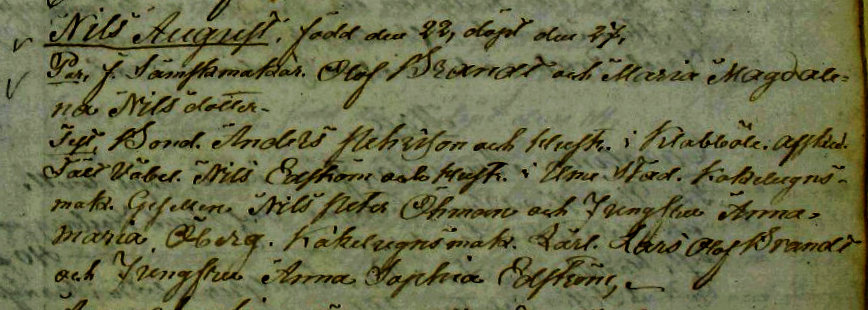 Nils August, född den 22, döpt den 27,
Par. f. Sämskmakar. Olof Brandt och Maria Magdale=
na Nils dotter.
Test. Bond. Anders Pehrson och Hustr. i Klabböle. Afsked.
Fält Väbel. Nils Edström och Hustr. i Umeå Stad. Kakelugns-
mak. Gesellen Nils Peter Öhman och Jungfru Anna
Maria Öberg. Kakelugnsmak. Lärl. Lars Olof Brandt
och Jungfru Anna Sophia Edström,